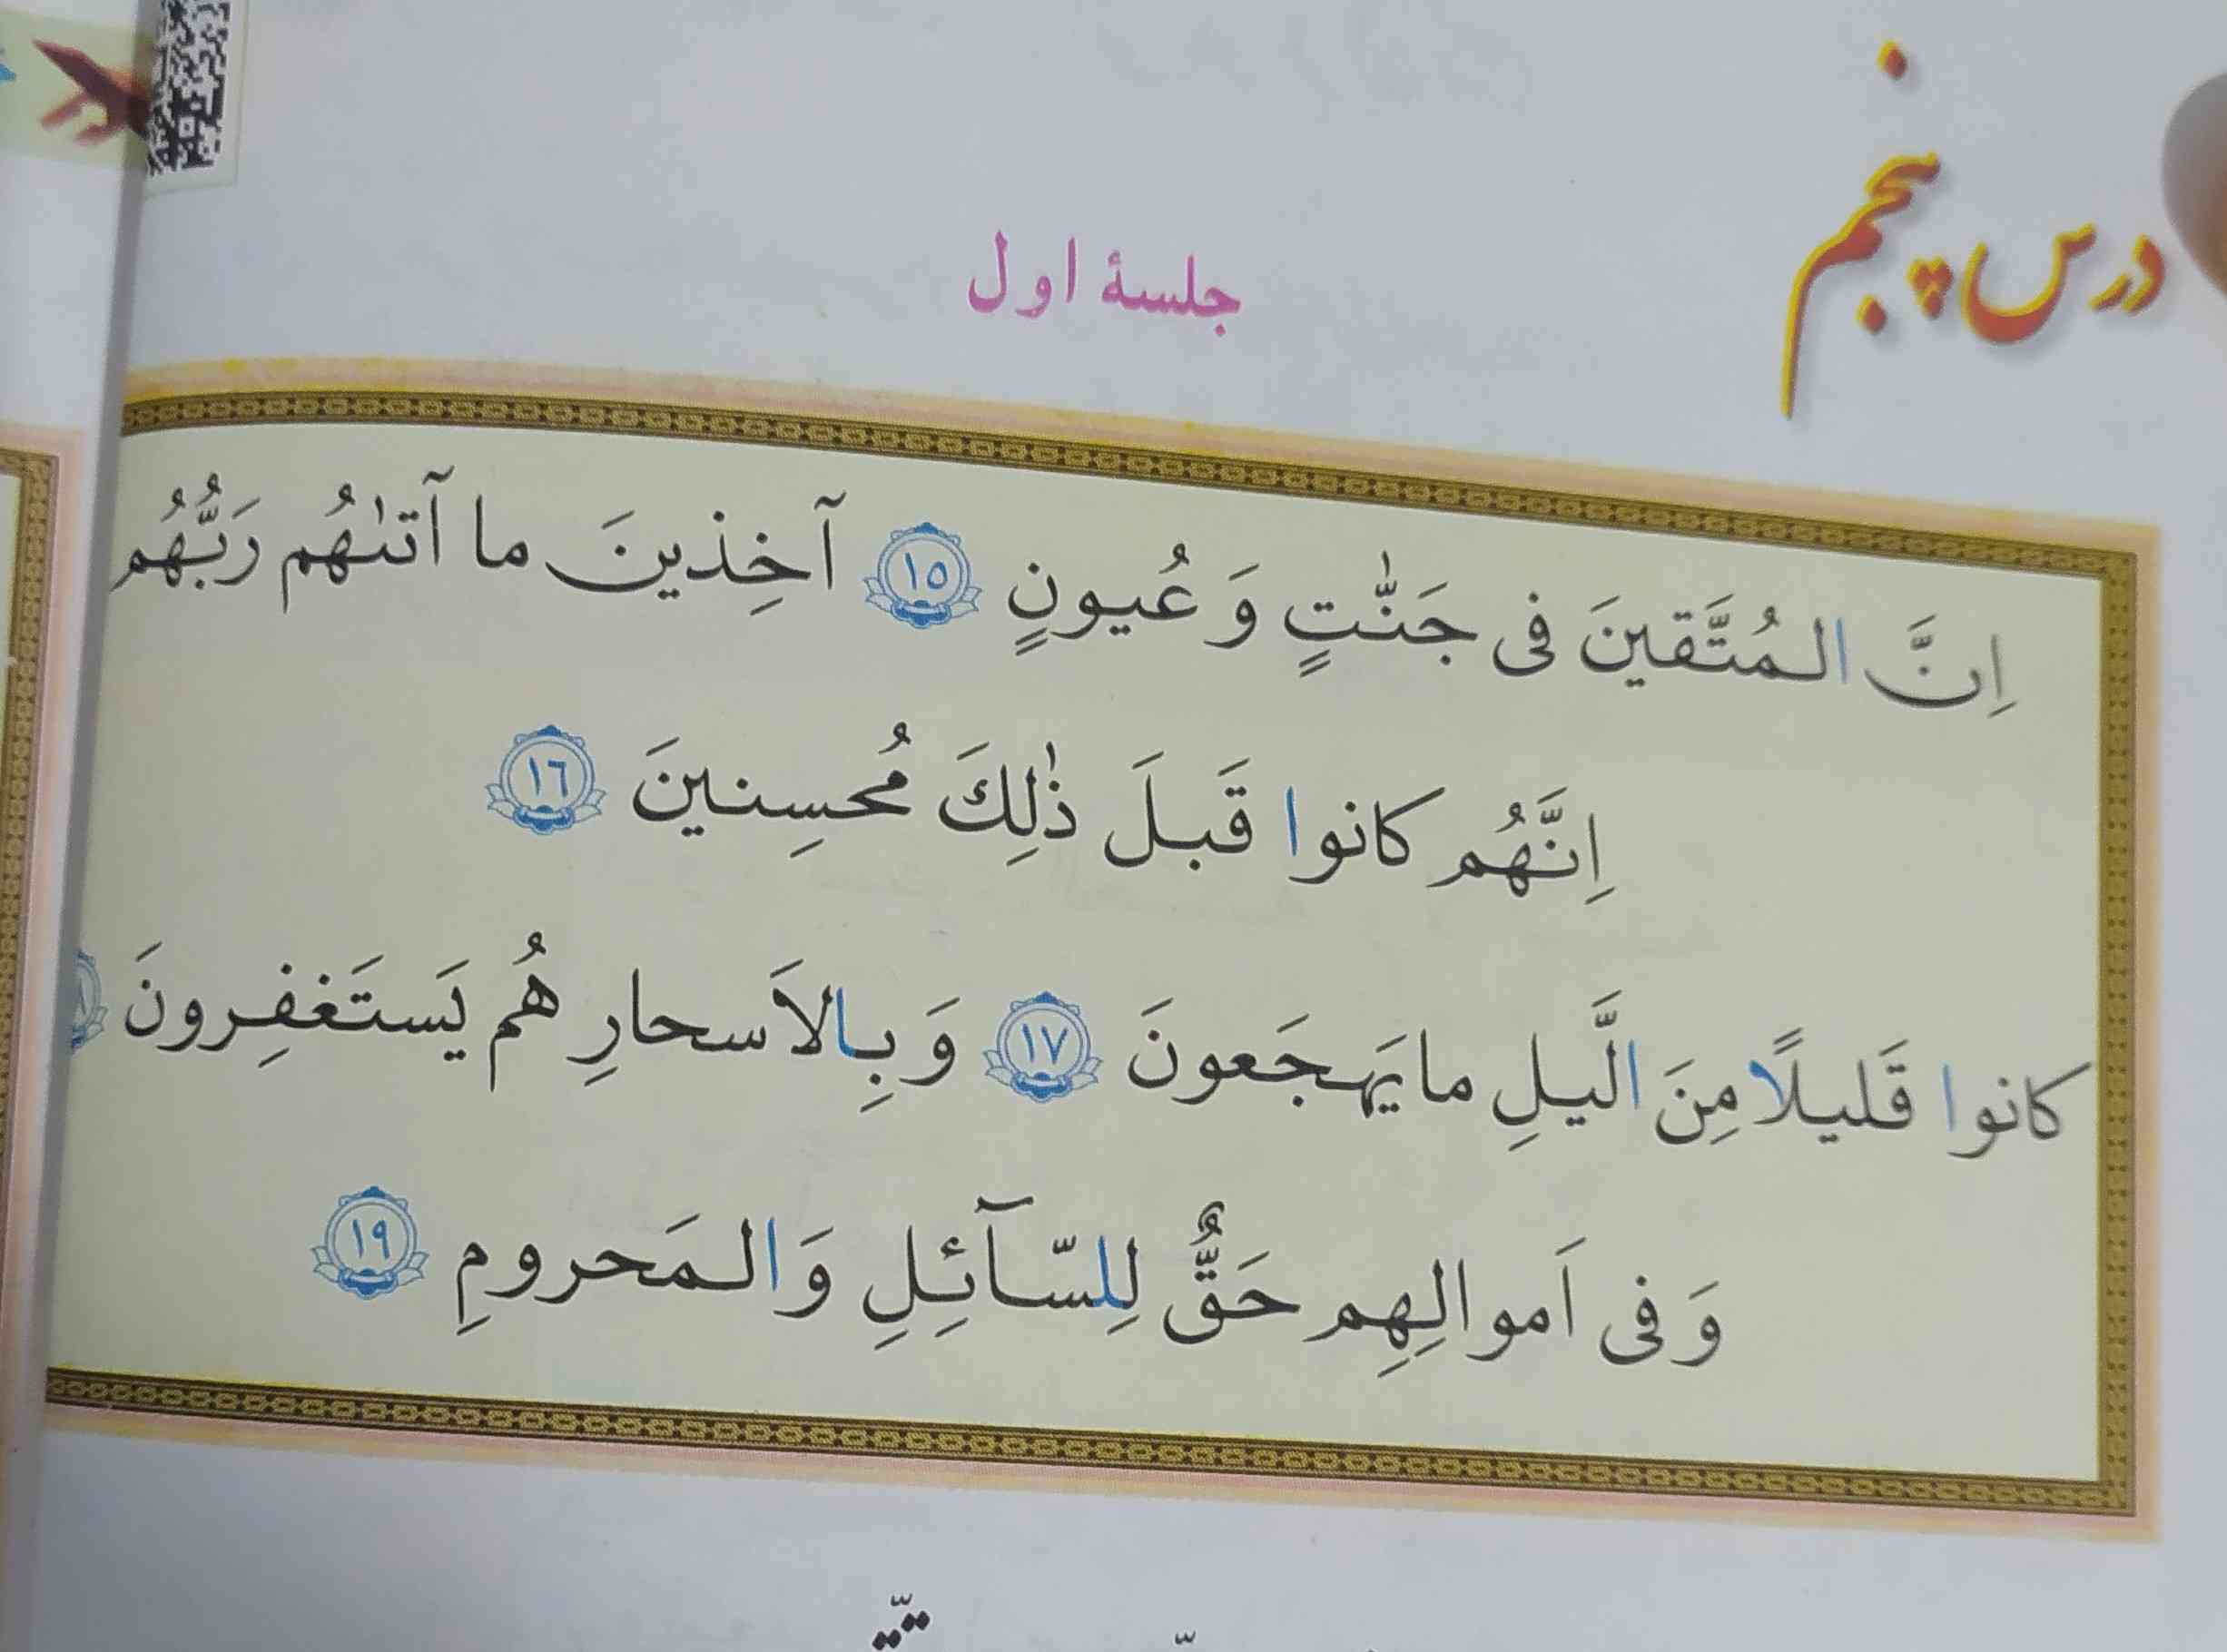 درس پنجم
جلسهٔ اول
اِنَّ المُتَّقینَ فی جَنّٰتٍ وَ عُیونٍ ١٥ آخِذینَ ما آتىٰهُم رَبُّهُم
اِنَّهُم کانوا قَبلَ ذٰلِكَ مُحسِنینَ ١٦
کانوا قَلیلًا مِنَ الَّیلِ ما یَهجَعونَ ١٧ وَ بِالاَسحارِ هُم یَستَغفِرونَ
وَ فی اَموالِهِم حَقٌّ لِلسّآئِلِ وَ المَحرومِ ١٩